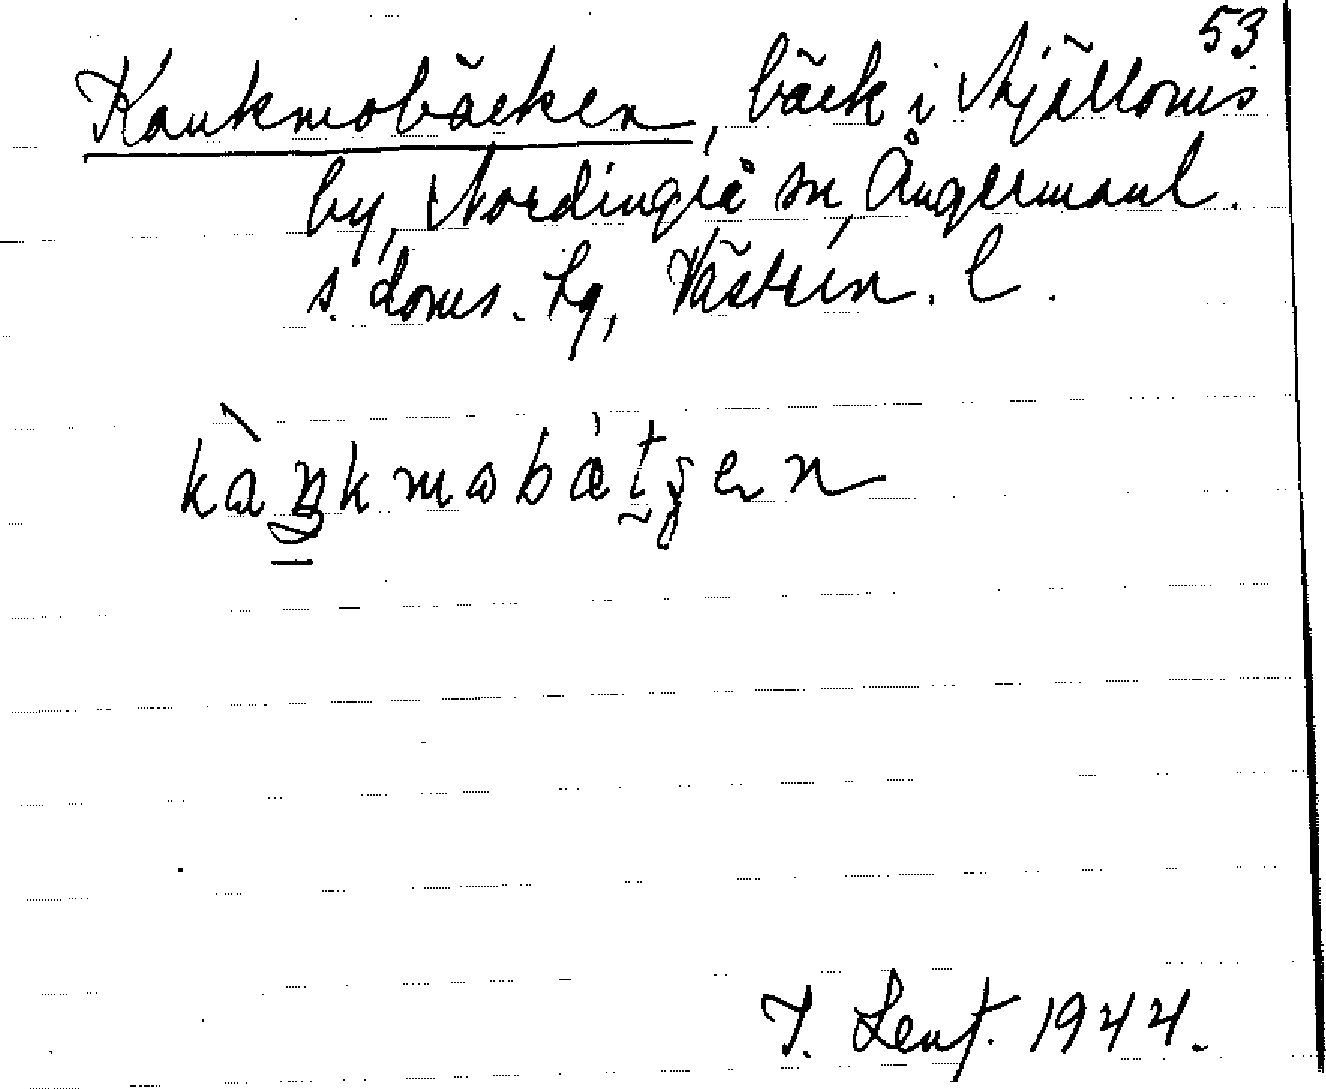 53
Kankmobäcken, bäck i Mjälloms
by, Nordingrå sn, Ångermanl.
s. doms. hg, Västern. l.
kànkmobätɕen
1944.